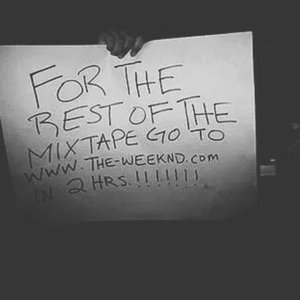 FOR THE
REST OF THE
MIXTAPE GO TO
WWW.THE-WEEKND.COM
IN 2 HRS.!!!!!!!